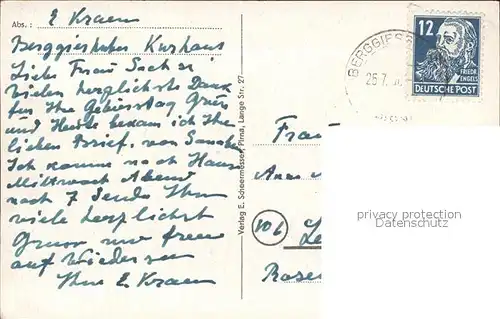 Abs.: E Kraem
Berggiesshübel Kurhaus
Liebe Frau
vielen herzlichste Dank
für Ihre Gebursttag Grüs
und bekam ich Ihr
lieben Brief. von
Ich komme nach Hause
Mittwoch Abend
nach 7 Sende Ihn
viele herzlichst
auf Wiedersen
Ihre E Kraem
Verlag E. Scheermesser, Pirna, Lange Str. 27
BERGGIES
12
FRIEDR. ENGELS
DEUTSCHE POST
Frau
Anna
10b
Rosen
privacy protection
Datenschutz